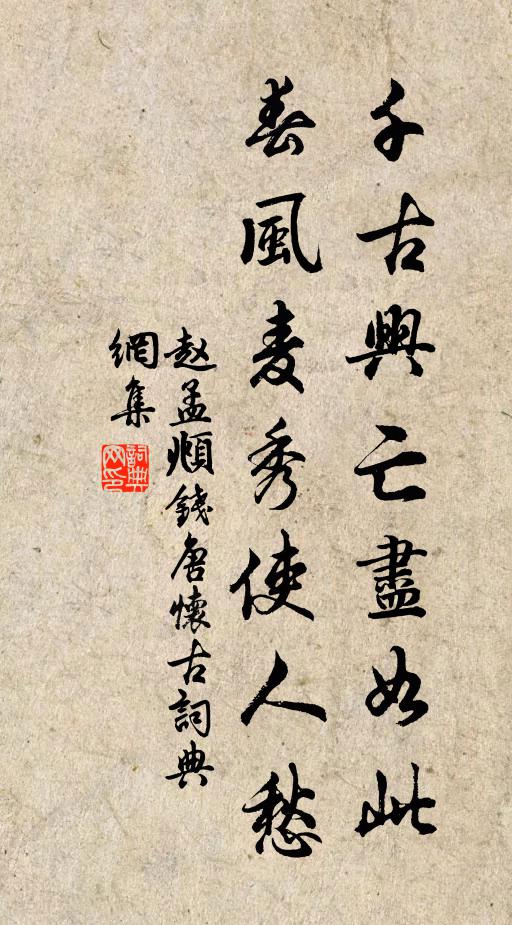 千古興亡盡如此
春風麦秀使人愁
赵孟頫錢唐懷古詞典
網集
詞典网印